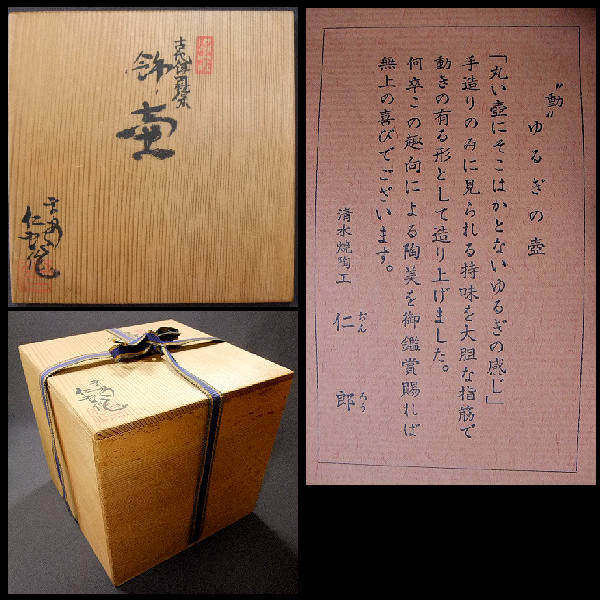 飾壷
仁郎作
仁郎作
〝動〟ゆるぎの壺
「丸い壺にそこはかとないゆるぎの感じ」
手造りのみに見られる特味を大胆な指筋で
動きの有る形として造り上げました。
何卒この趣向による陶美を御鑑賞賜れば
無上の喜びでございます。
清水焼陶工 仁郎
おん ろう